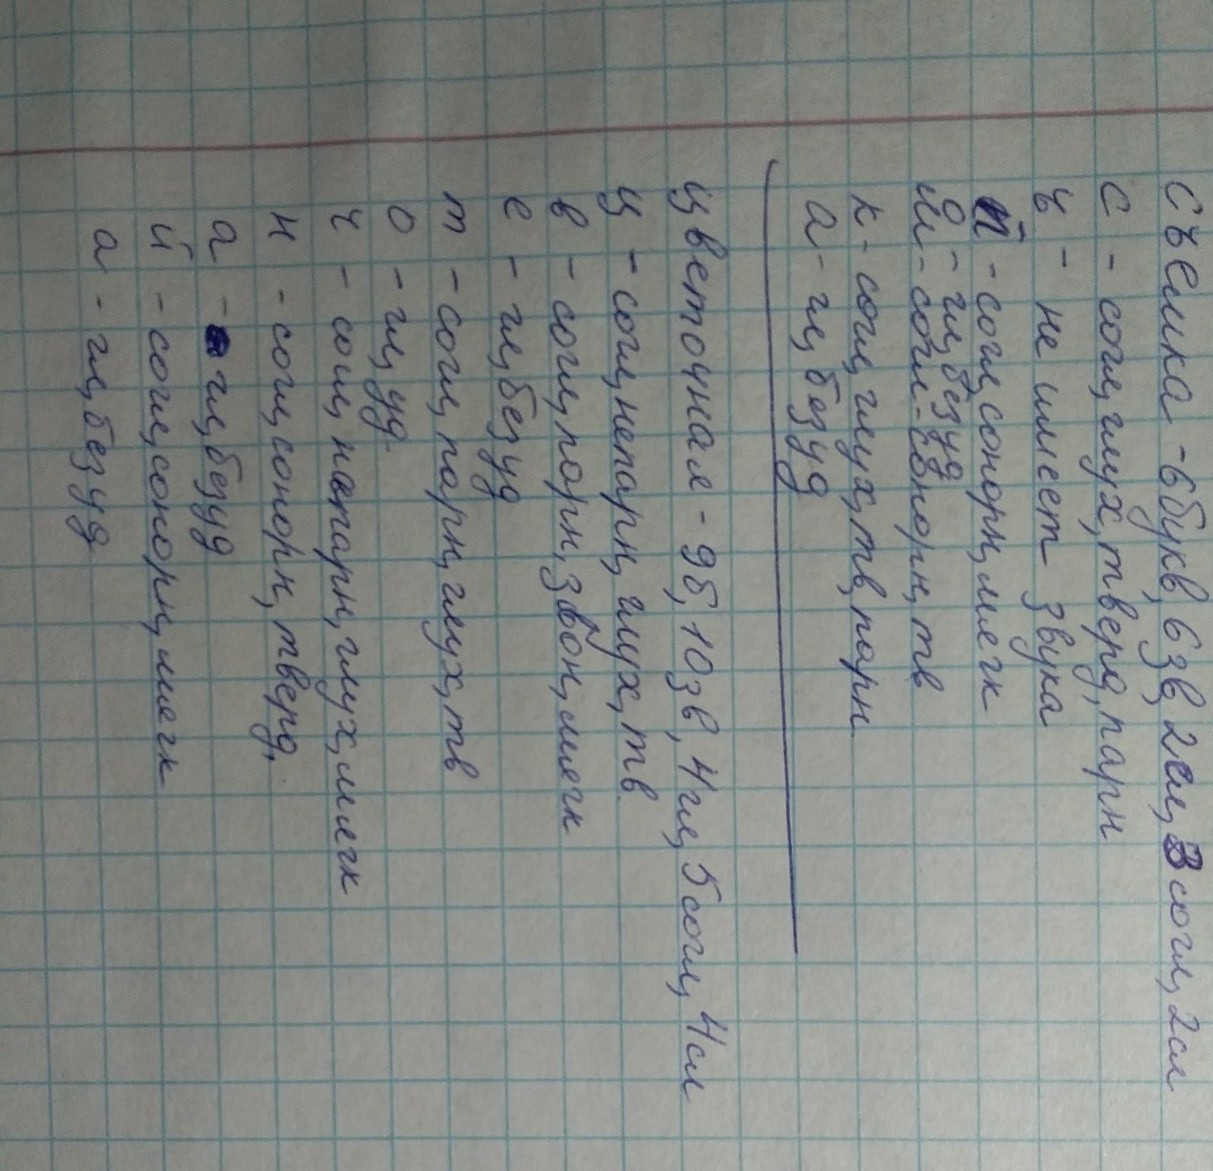 Съемка - 6 букв, 6 зв, 2 гл, 3 согл, 2 сл
с - согл, глух, тверд, парн
ъ - не имеет звука
й - согл, сонорн, мягк
э - гл, безуд
м - согл, сонорн, тв
к - согл, глух, тв, парн
а - гл, безуд
Цветочная - 9б, 10зв, 4гл, 5согл, 4сл
ц - согл, непарн, глух, тв
в - согл, парн, звон, мягк
е - гл, безуд
т - согл, парн, глух, тв
о - гл, уд
ч - согл, непарн, глух, мягк
н - согл, сонорн, тверд,
а - гл, безуд
й - согл, сонорн, мягк
а - гл, безуд